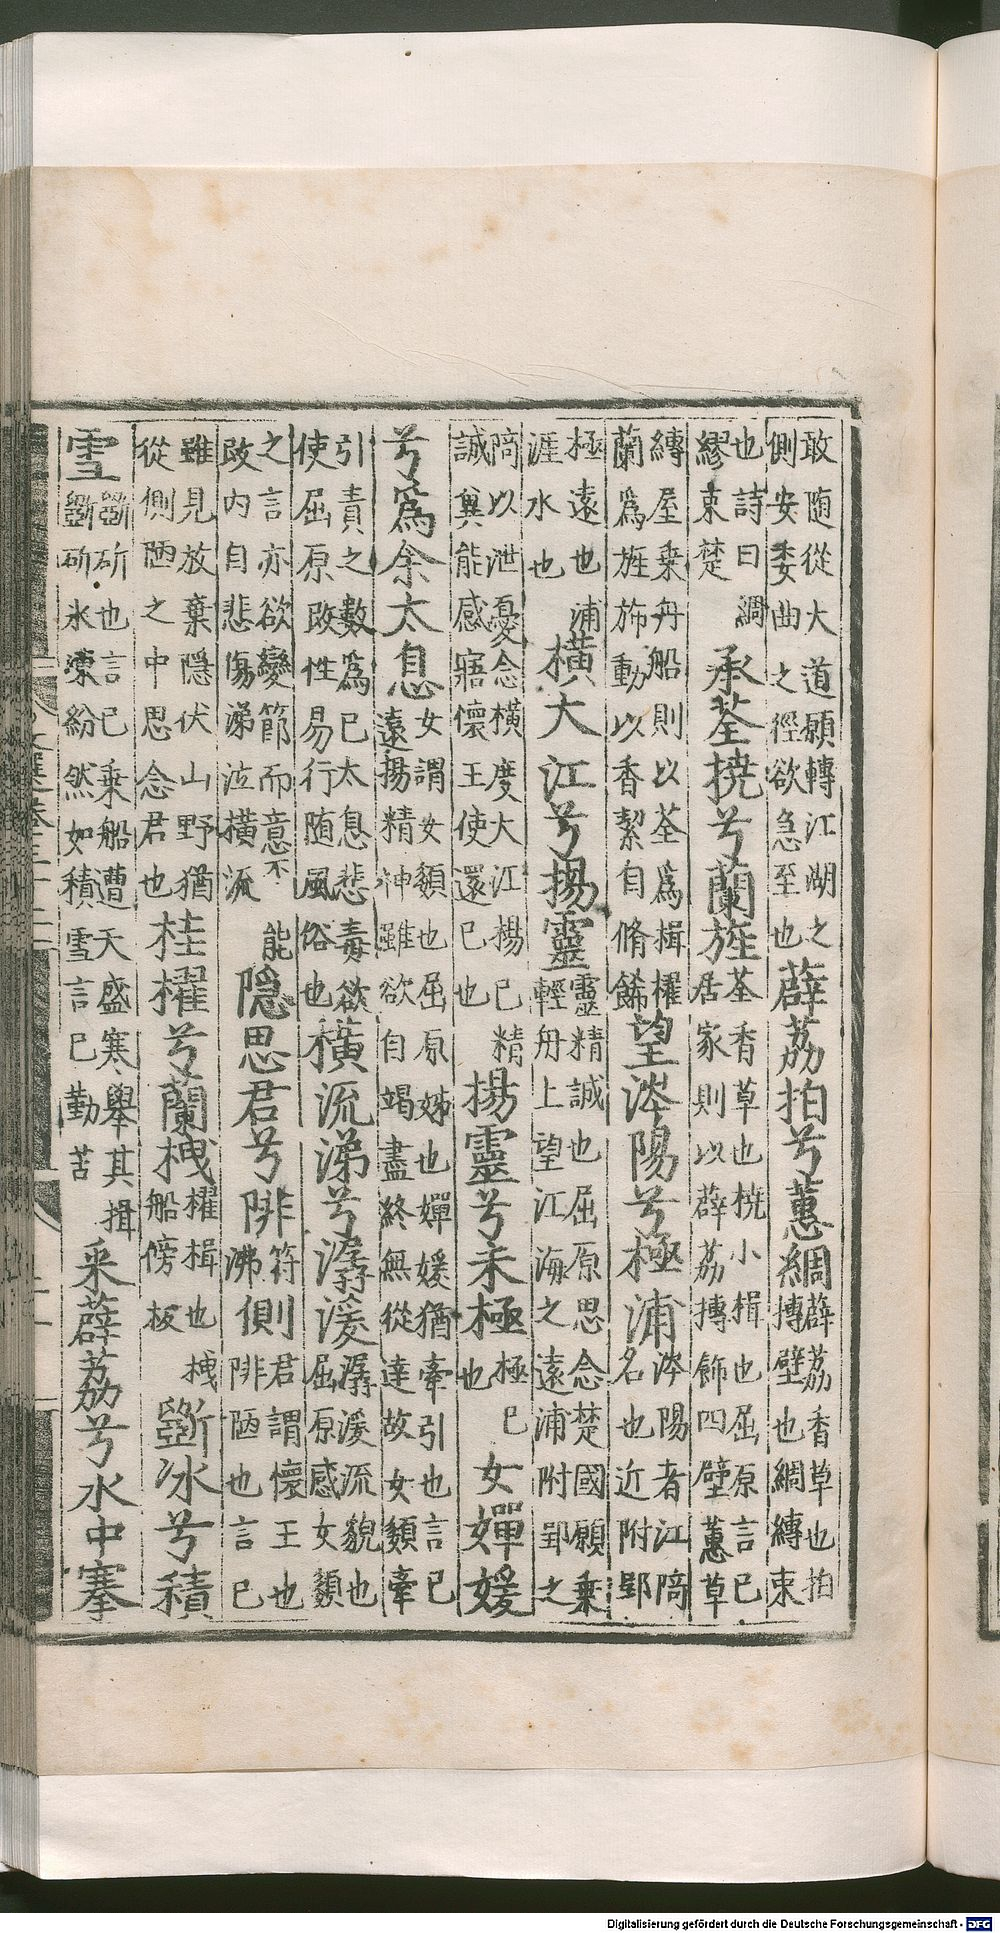 敢随從大道願轉江湖之
側安委曲之徑欲急至也
薜荔拍兮蕙綢
薜荔香草也拍
搏壁也綢縛束
也詩曰綢
繆束楚
承荃橈兮蘭旌
荃香草也橈小楫也屈原言己
居家則以薜荔搏飾四壁蕙草
縛屋乗舟船則以荃為楫櫂
蘭為旌旆動以香絜自脩餙
望涔陽兮極浦
涔陽者江碕
名也近附郢
極遠也浦
涯水也
横大江兮揚靈
靈精誠也屈原思念楚國願乗
輕舟上望江海之遠浦附郢之
碕以泄憂念横度大江揚己精
誠冀能感寤懷王使還己也
揚靈兮未極
極已
也
女嬋媛
兮為余太息
女謂女嬃也屈原姊也嬋媛猶牽引也言己
遠揚精神雖欲自竭盡終無從達故女嬃牽
引責之數為己太息悲毒欲
使屈原改性易行随風俗也
横流涕兮潺湲
潺湲流貌也
屈原感女嬃
之言亦欲變節而意不能
改内自悲傷涕泣横流
隠思君兮陫
符
沸
側
君謂懷王也
陫陋也言己
雖見放棄隠伏山野猶
從側陋之中思念君也
桂櫂兮蘭栧
櫂楫也栧
船傍板
斵冰兮積
雪
斵斫也言己乗船遭天盛寒舉其楫
斵斫氷凍紛然如積雪言己勤苦
采薜荔兮水中搴
Digitalisierung gefördert durch die Deutsche Forschungsgemeinschaft - DFG